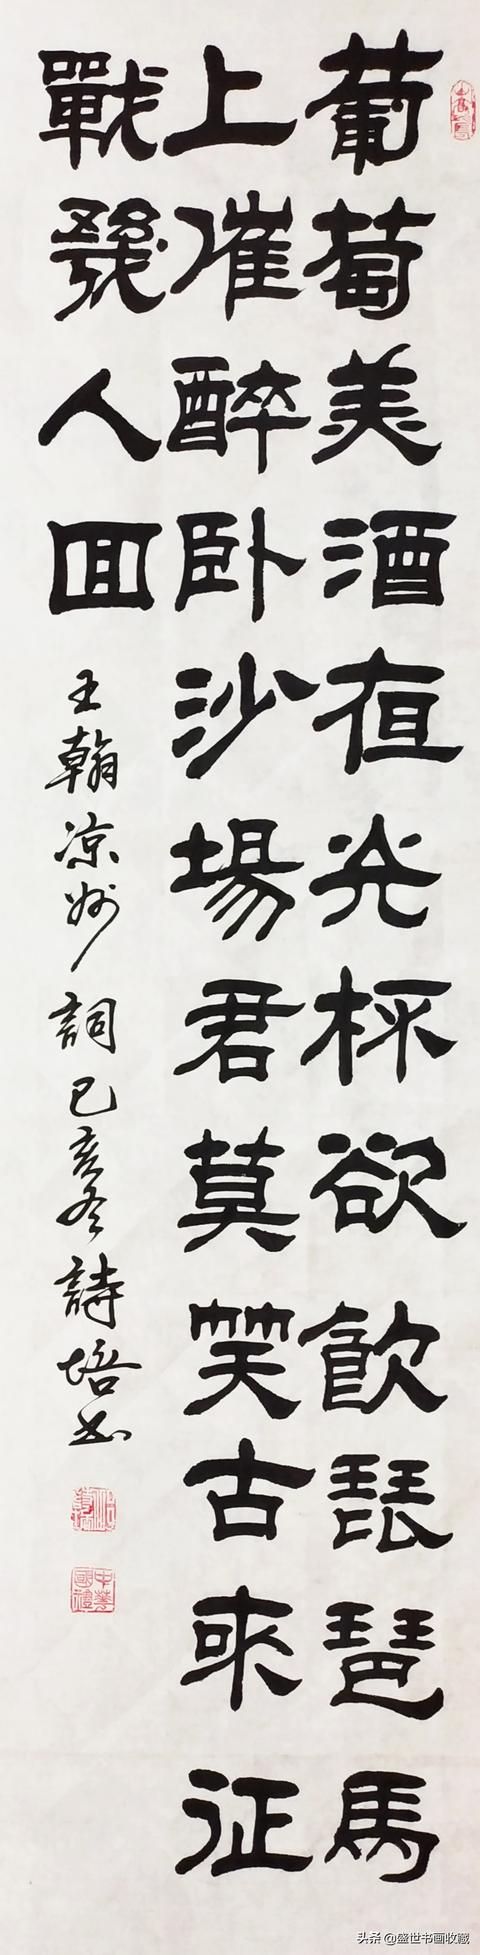 葡萄美酒夜光杯欲飲琵琶馬
上催醉卧沙場君莫笑古來征
戰幾人回
王翰涼州詞己亥冬詩培書
中華國禮
头条 @盛世书画收藏